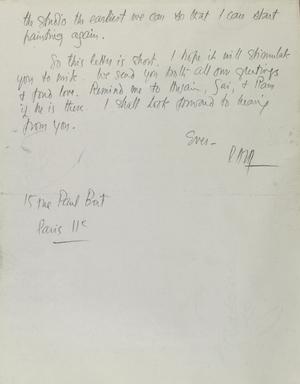 the studio the earliest we can so that I can start
painting again.
So this letter is short. I hope it will stimulate
you to write. We send you both all our greetings
& fond love. Remind me to Husain, Gai, & Ram
if he is there. I shall look forward to hearing
from you.
Ever –
15 rue Paul Bert
Paris 11e